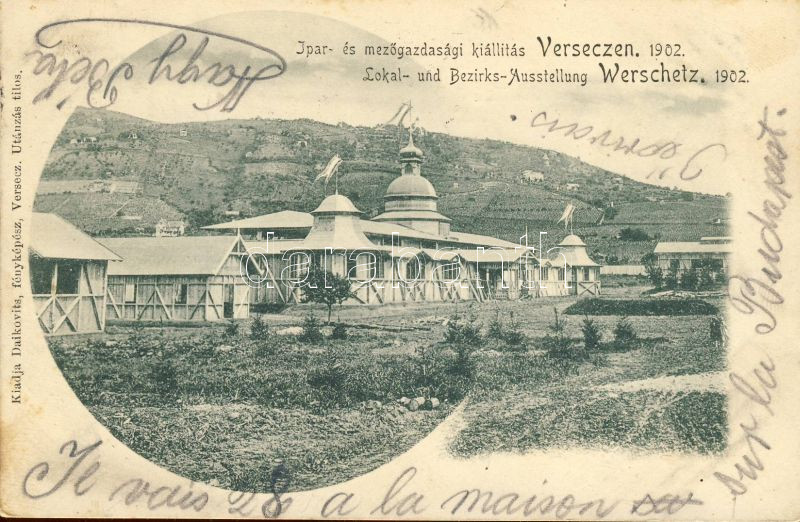 Ipar- és mezőgazdasági kiállitás Verseczen. 1902.
Lokal- und Bezirks-Ausstellung Werschetz. 1902.
Nagy Béla
darabanth
Kiadja Daikovits, fényképész, Versecz. Utánzás tilos.
Je vais 28 a la maison
sur la Budapest.